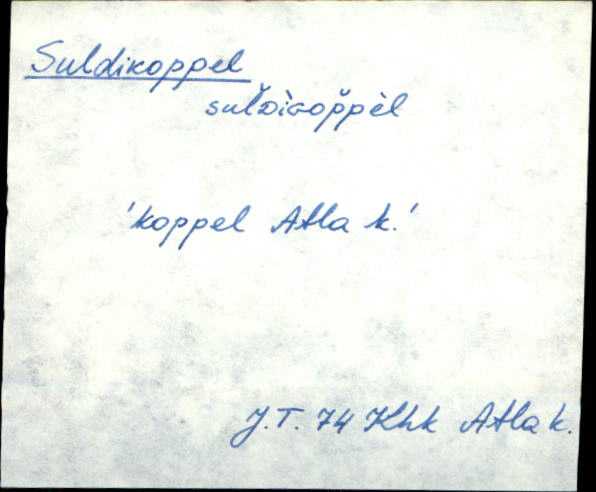 Suldikoppel
sul̆ᴅìᴋop̆pèl
'koppel Atla k.'
J.T. 74 Khk Atla k.